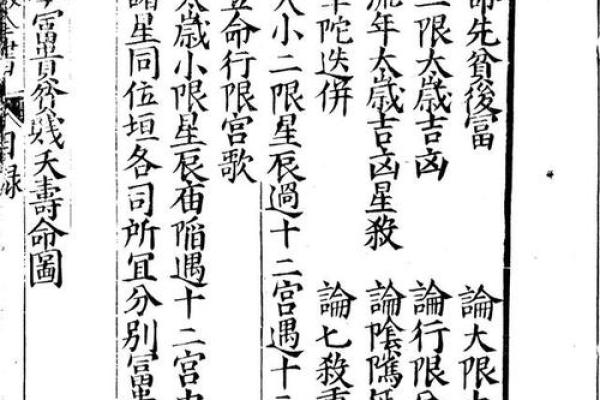 命先貧後富 論大限
二限太歲吉凶 論行限分
流年太歲吉凶星殺 論陰騭延
羊陀迭併 論七殺重
大小二限星辰過十二宮遇十二
立命行限宮歌
太歲小限星辰廟陷遇十二宮中
諸星同位垣各司所宜分別富貴
富貴貧賤夭壽命圖
目錄